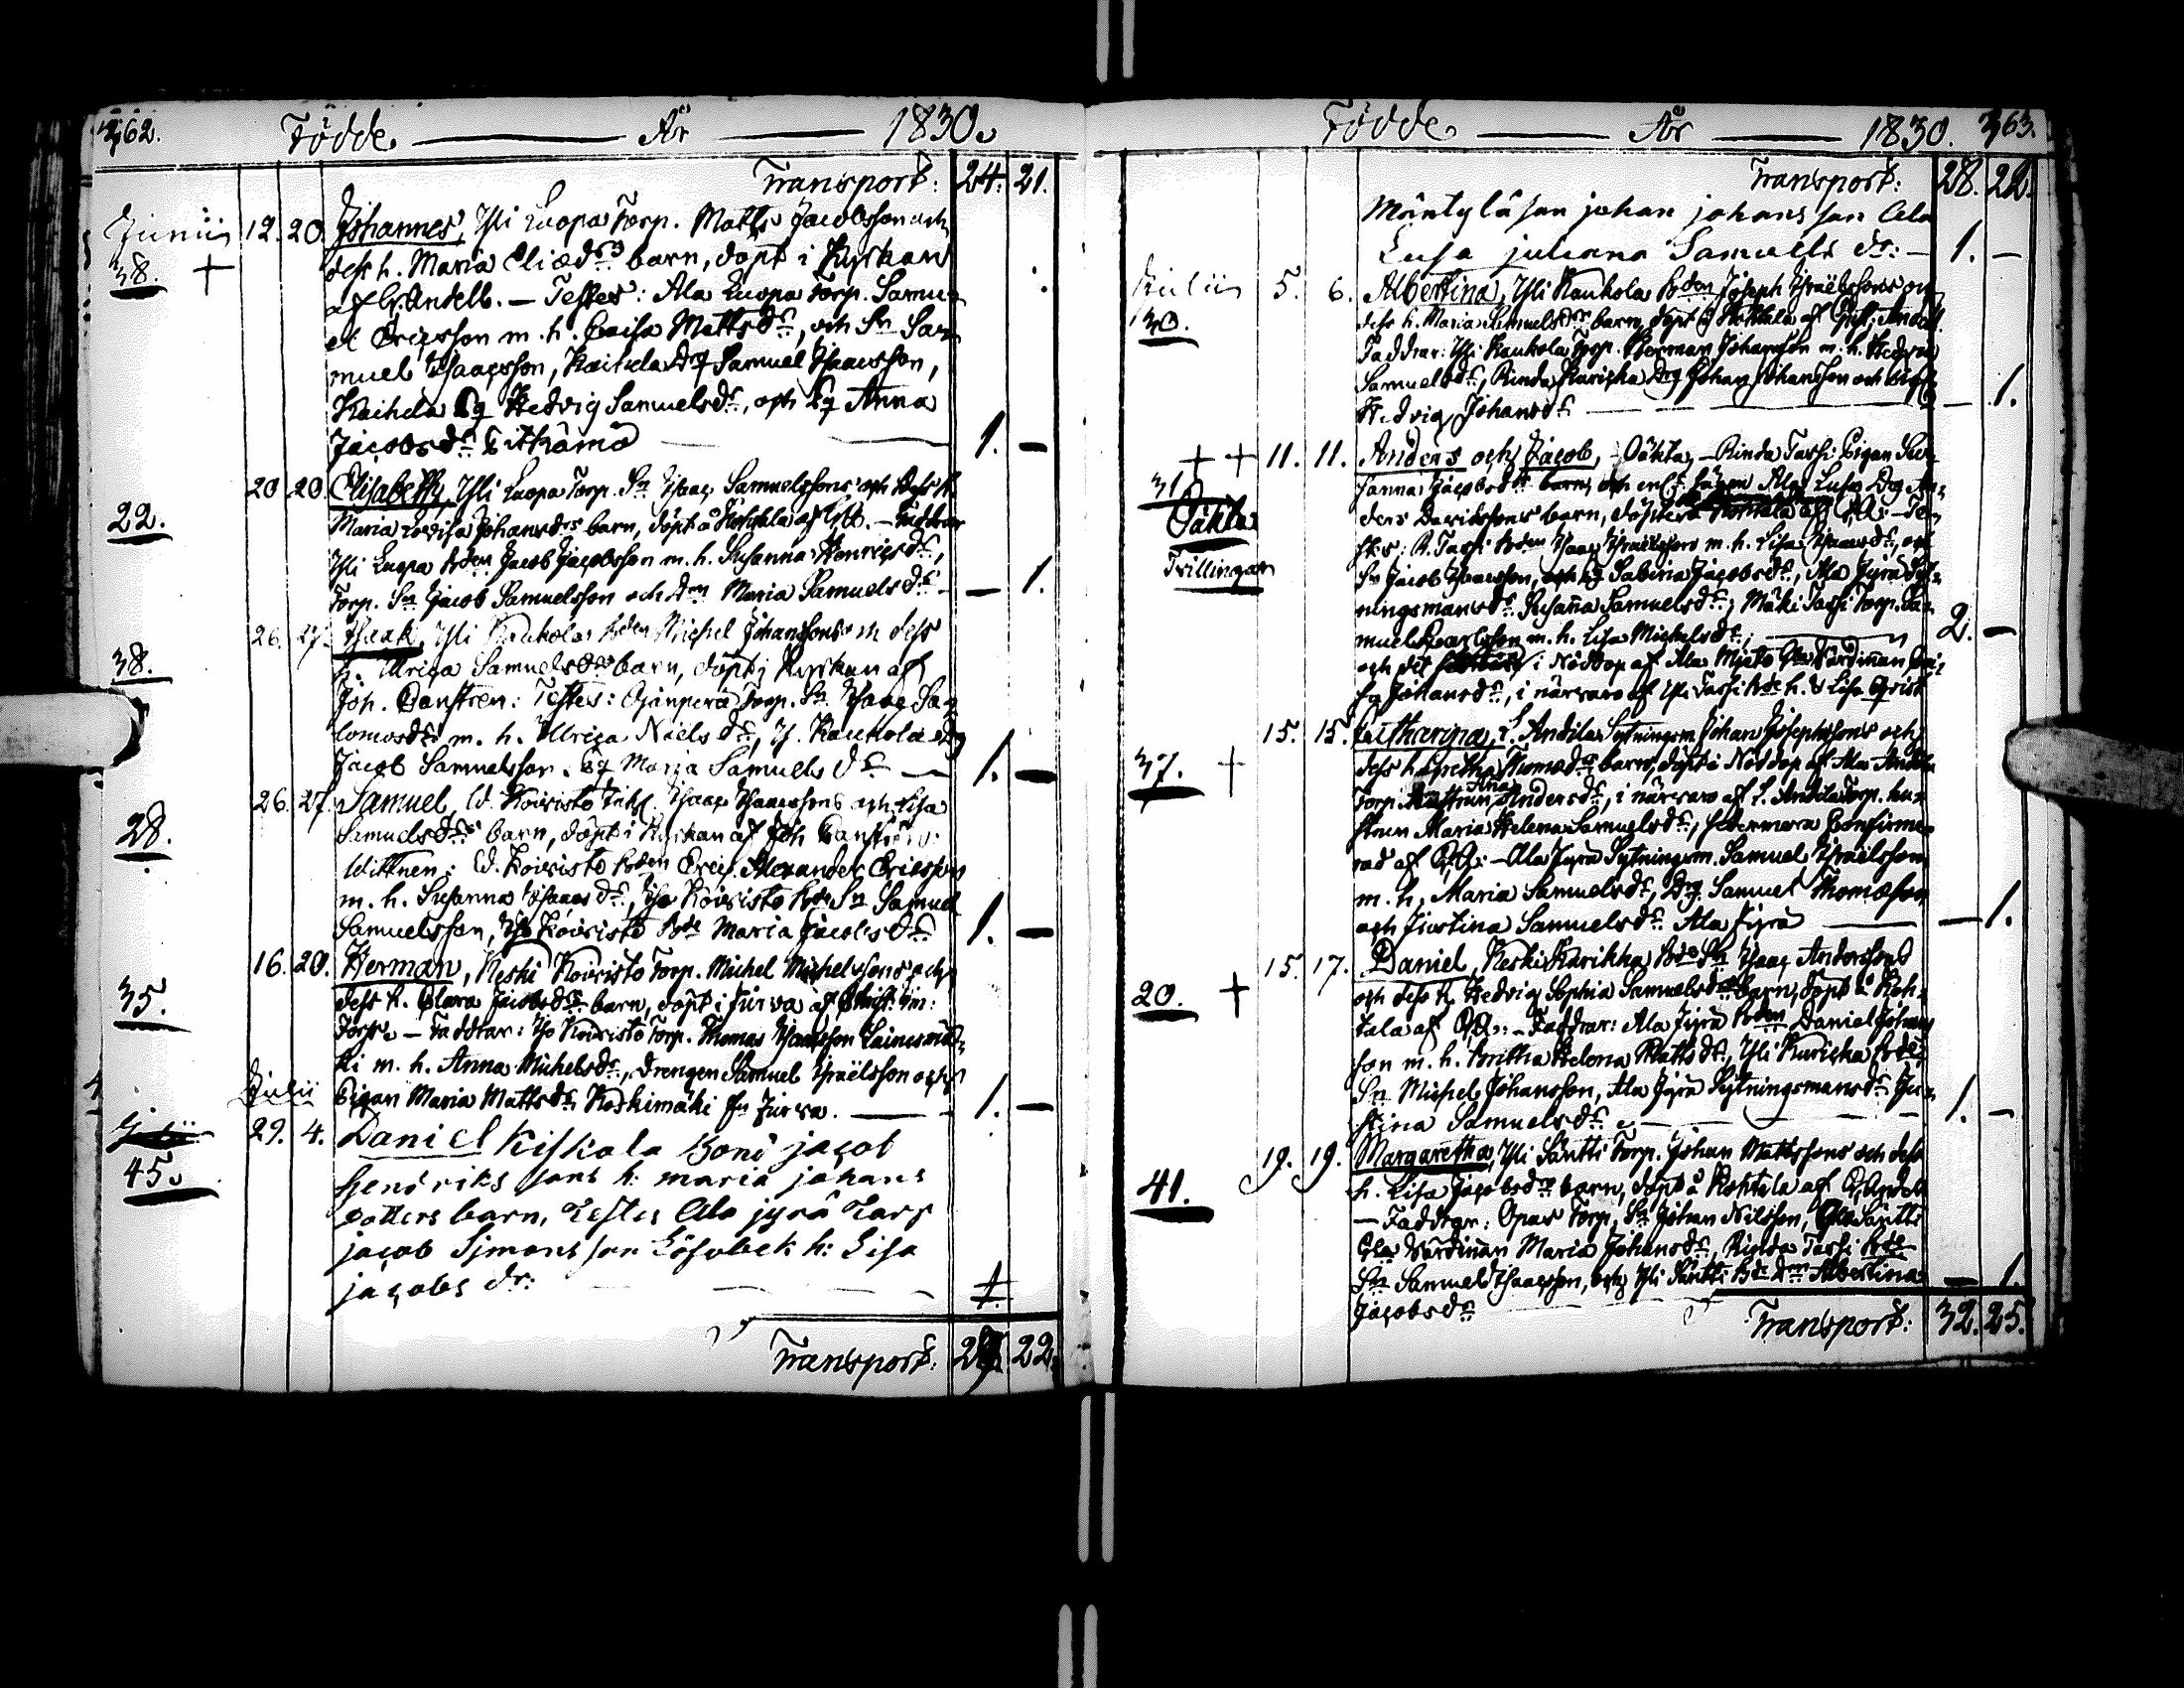 362. Födde År 1830.
Transport: 24. 21.
Junii 12. 20. Johannes, Yli Luopa Torp. Matts Jacobsson och
38. + dess h. Maria Eliædrs barn, döpt i Kyrkan
af Gr. Andell. — Testes: Ala Luopa Torp. Samu-
el Ericsson m. h. Caisa Matts dr, och Sn Sa-
muel Isaacsson, Kaihela Dg Samuel Isaacsson,
Kaihela Pg Hedvig Samuelsdr, och Pg Anna
Jacobsdr 1. —
20 20. Elisabeth, Yli Luopa Torp. Sn Isaac Samuelssons och dess h.
22. Maria Lovisa Johansdrs barn, döpt å Kohtala af — Faddrar
Yli Luopa Bden Jacob Jacobsson m. h. Susanna Henricsdr,
Torp. Sn Jacob Samuelsson och Dmn Maria Samuelsdr — 1.
26. 27. Isaak, Yli Kaukola Bden Michel Johanssons m dess
38. h. Ulrica Samuelsdrs barn, döpt i Kyrkan af
Joh. Danström: Testes: Ojanperä Torp. Sn Isaac Sa-
lomonsdr m. h. Ulrica Nielsdr, Y. Kaukola Dg
Jacob Samuelsson, Pg Maria Samuelsdr — 1. —
26. 27. Samuel, W. Koivisto Inh. Isaac Isaacssons och Lisa
28. Samuelsdrs barn, döpt i Kyrkan af Joh Danström:
Wittnen: W. Koivisto Bden Eric Alexander Ericsson
m. h. Susanna Isaacsdr, Iso Koivisto Bde Sn Samuel
Samuelsson, Iso Koivisto Bde Maria Jacobsdr 1. —
16. 20. Herman, Keski Koivisto Torp. Michel Michelssons och
35. dess h. Clara Jacobsdrs barn, döpt i Jurva af
— Faddrar: Iso Koivisto Torp. Thomas Isaacsson
m. h. Anna Michelsdr, Drengen Samuel Israëlsson och
Julii Pigan Maria Mattsdr Koskimäki fr. Jurva. — 1. —
29. 4. Daniel Kiskola Bond jacob
45. Hendriks sons h: maria johans
dotters barn, Testes Ala jyrå Tarp
jacob Simons son Löfvbek h: Lisa
jacobs dr: 1.
Transport: 28. 22.
Födde År 1830. 363.
Transport: 28. 22.
Mäntylä son johan johans son Ala
Luſa juliana Samuels dr: — 1. —
Julii 5. 6. Albertina, Yli Kaukola Bden Joseph Israëlssons och
30. dess h. Maria Samuelsdrs barn, döpt å Kohtala af Andell.
Faddrar: Yli Kaukola Torp. Herman Johansson m. h. Hedvig
Samuelsdr, Rinda Karicka Drg Johan Johansson och
Hedvig Johansdr — 1.
+ + 11. 11. Anders och Jacob, — Oäkta, — Rinda Tassi Pigan Su-
31 sanna Jacobsdrs barn, Drg An-
Oäkta ders Davidssons barn, döpte å Kohtala af — Te-
stes: R. Tassi Bden Isaac Israëlsson m. h. Lisa Isaacsdr, och
Trillingar Sn Jacob Isaacsson, och Pg Sabina Jacobsdr, Ala Jyrä Syt-
ningsmansdr Susanna Samuelsdr; Mäki Tassi Torp. Sa-
muel Carlsson m. h. Lisa Michelsdr; 2. —
och det i Nöddop af Ala
Johansdr, i närvaro af Yli Tassi Bde h. Lisa
15. 15. Catharina, L. Andila Sytningsm Johan Josephssons och
37. + dess h. Gretha Thomædrs barn, döpt i Nöddop af Ala Andila
Torp. Anna Andersdr, i närvaro af L. Andila Torp. hu-
strun Maria Helena Samuelsdr, sedermera Confirme-
rad af — Ala Jyrä Sytningsm. Samuel Israëlsson
m. h. Maria Samuelsdr, Drg. Samuel Thomæson
och Justina Samuelsdr Ala Jyrä — 1.
15. 17. Daniel, Keski Karikka Bde Sn Isaac Anderssons
20. + och dess h. Hedvig Sophia Samuelsdrs barn, döpt å Koh-
tala af — Faddrar: Ala Jyrä Bden Daniel Johans
son m. h. Britha Helena Mattsdr, Yli Karicka Bde
Sn Michel Johansson, Ala Jyrä Sytningsmansdr Ju-
stina Samuelsdr. — 1. —
19. 19. Margaretha, Yli Säntti Torp. Johan Mattssons och dess
41. h. Lisa Jacobsdrs barn, döpt å Kohtala af Andell
— Faddrar: Torp. Sn Johan Nilsson, Ala Säntti
Maria Johansdr, Rinda Tassi Bde
Sn Samuel Isaacsson, och Yli Säntti Bde Dmn Albertina
Jacobsdr — 1.
Transport: 32. 25.